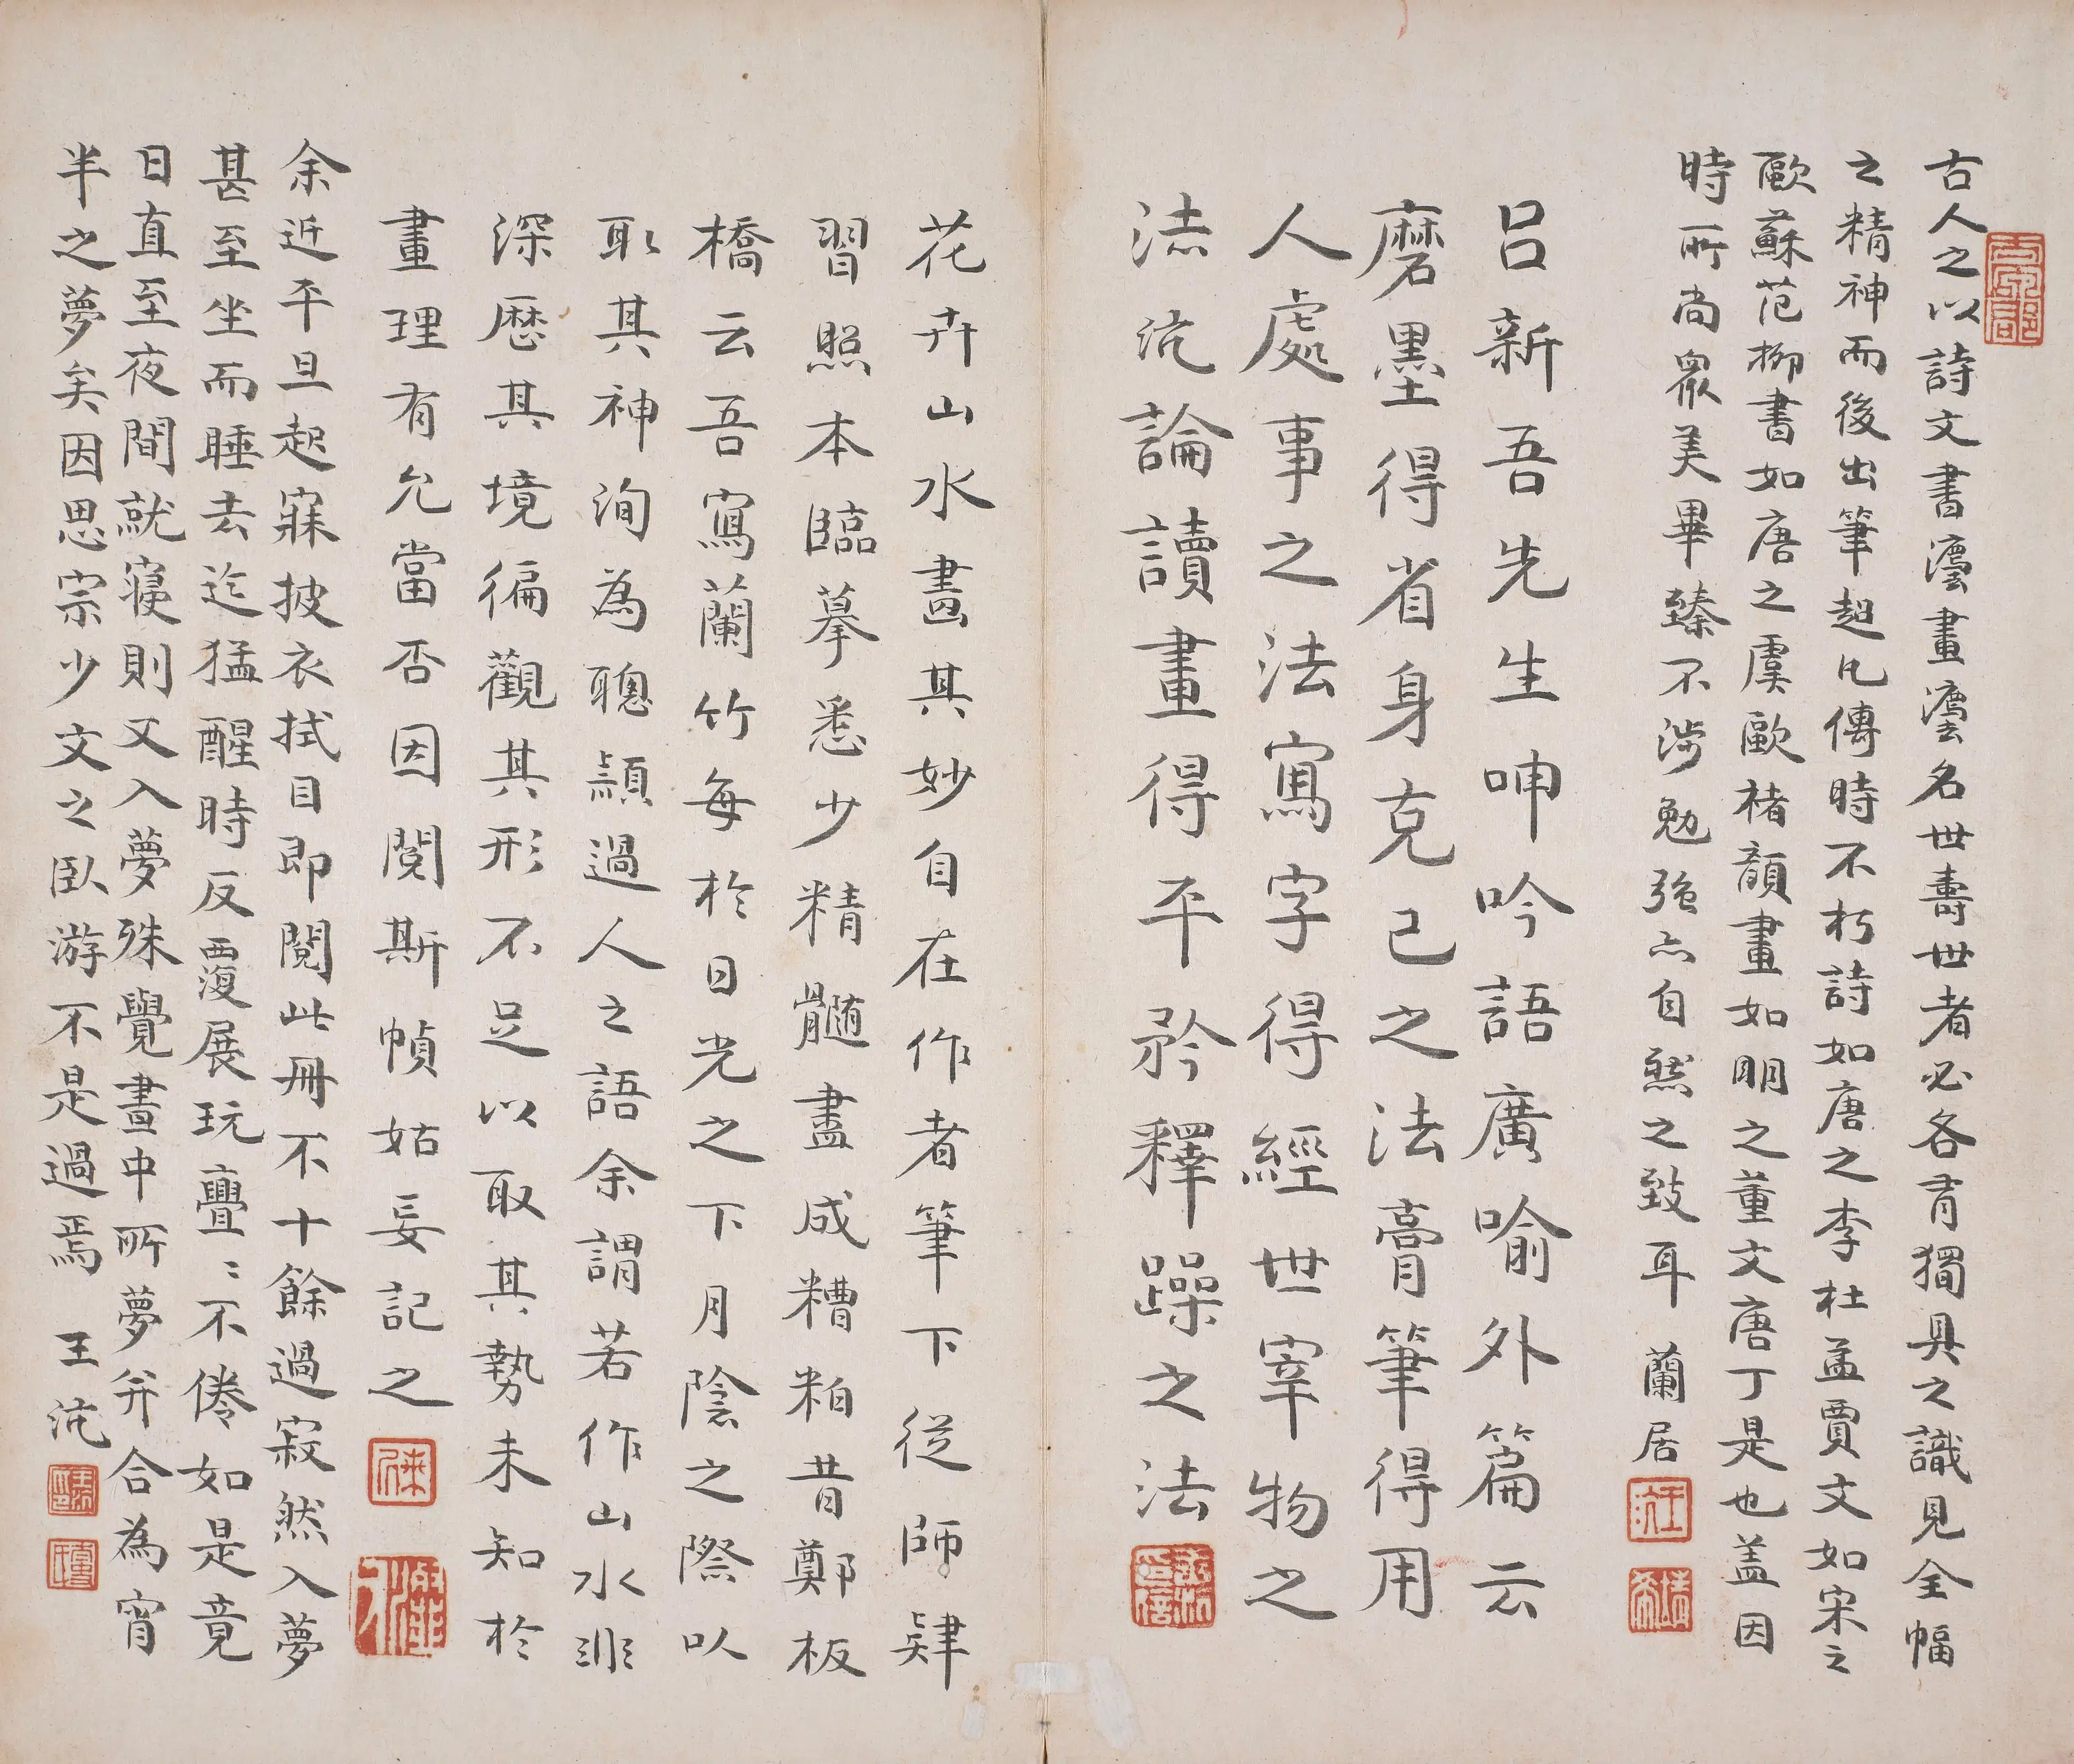 古人之以詩文書澐畫澐名世壽世者必各有獨具之識見全幅
之精神而後出筆超凡傳時不朽詩如唐之李杜孟賈文如宋之
歐蘇范柳書如唐之虞歐褚顏畫如明之董文唐丁是也盖因
時所尚眾美畢臻不涉勉強亦自然之致耳 蘭居
呂新吾先生呻吟語廣喻外篇云
磨墨得省身克己之法膏筆得用
人處事之法寫字得經世宰物之
法沇論讀畫得平矜釋躁之法
花卉山水畫其妙自在作者筆下從師肄
習照本臨摹悉少精髓盡成糟粕昔鄭板
橋云吾寫蘭竹每於日光之下月陰之際以
取其神洵為聰穎過人之語余謂若作山水非
深歷其境徧觀其形不足以取其勢未知於
畫理有允當否因閱斯幀姑妄記之
余近平旦起寐披衣拭目即閱此冊不十餘過寂然入夢
甚至坐而睡去迄猛醒時反覆展玩亹〻不倦如是竟
日直至夜間就寢則又入夢殊覺晝中所夢弁合為宵
半之夢矣因思宗少文之臥游不是過焉 王沇